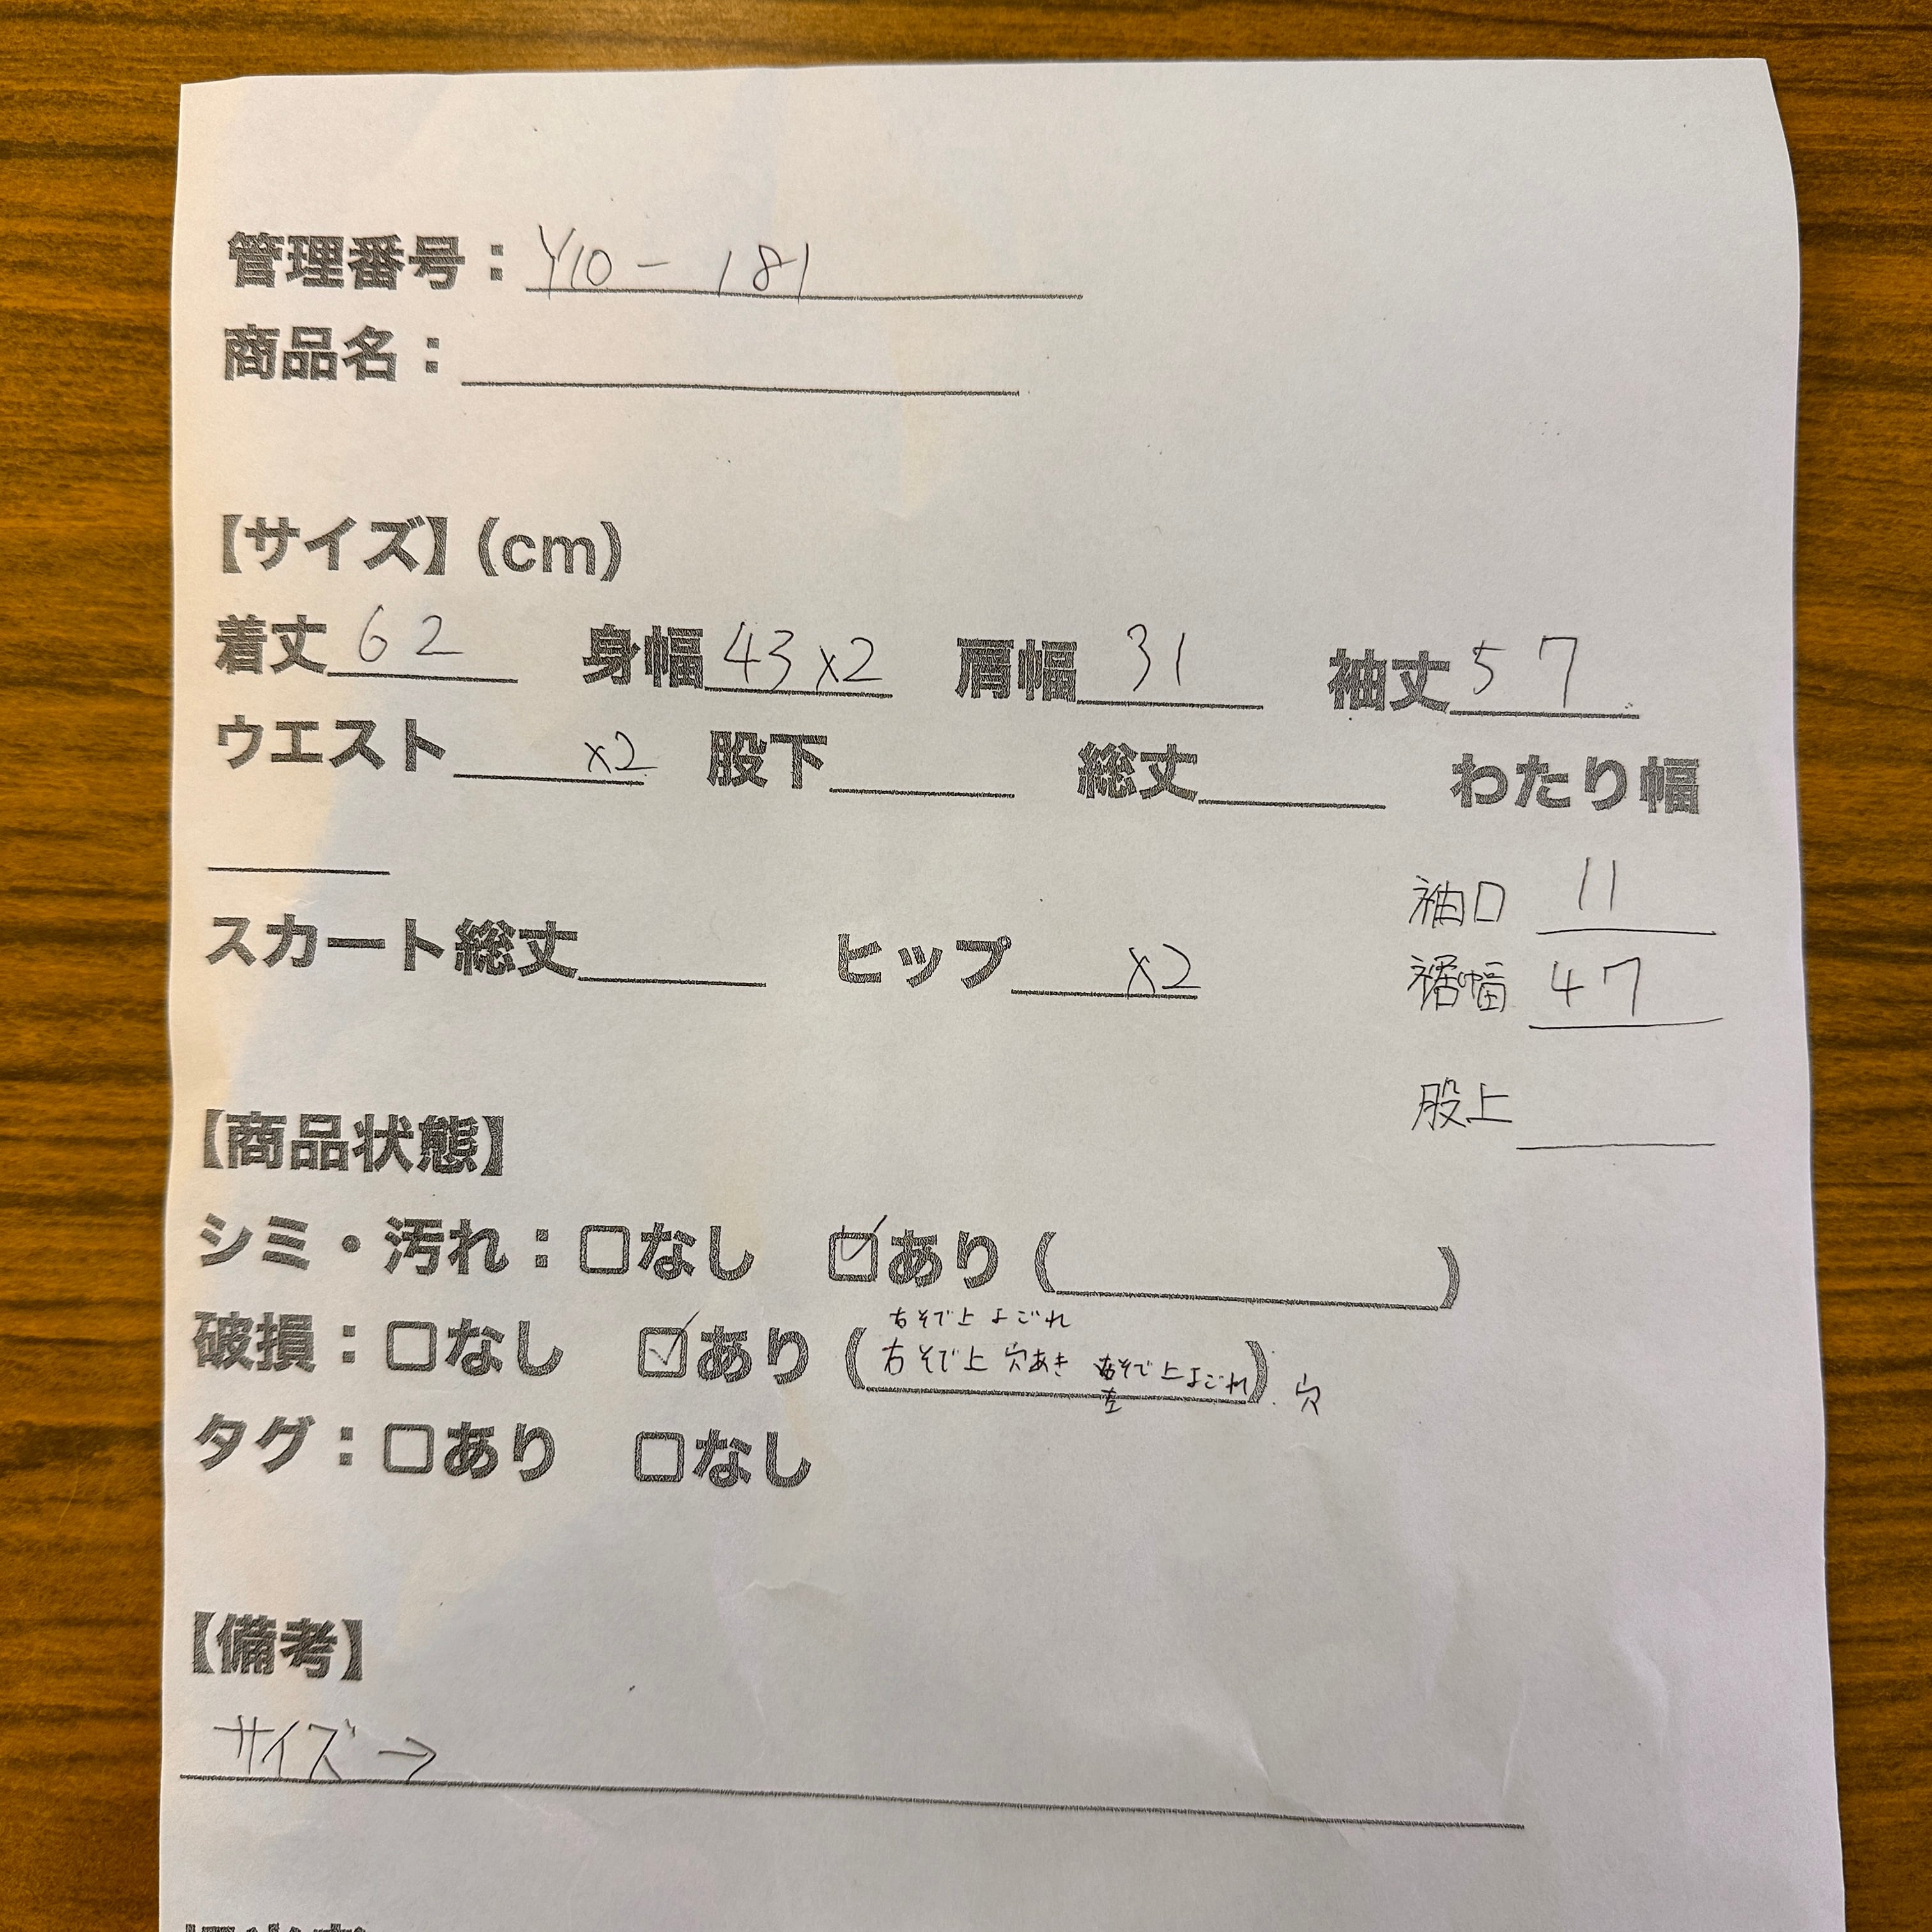 管理番号：Y10 - 181
商品名：
【サイズ】(cm)
着丈 62 身幅 43 x2 肩幅 31 袖丈 57
ウエスト x2 股下 総丈 わたり幅
袖口 11
スカート総丈 ヒップ x2
裾幅 47
股上
【商品状態】
シミ・汚れ：□なし ☑あり( )
右そで上 よごれ
破損：□なし ☑あり(右そで上 穴あき そで上よごれ) 穴
左
タグ：□あり □なし
【備考】
サイズ→